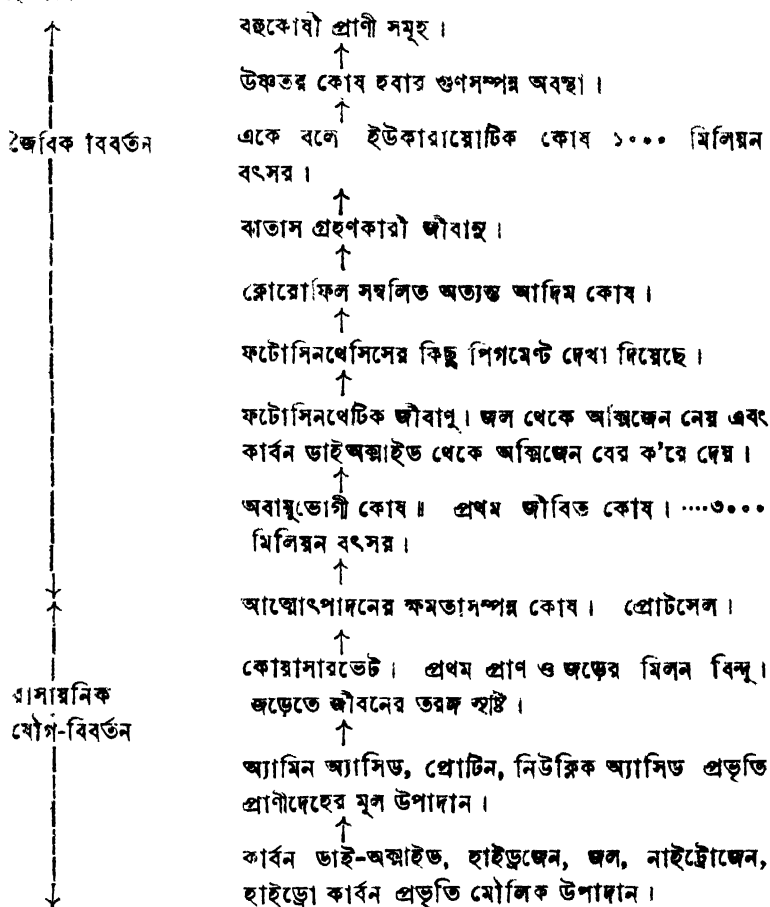 বহুকোষী প্রাণী সমূহ।
উষ্ণতর কোষ হবার গুণসম্পন্ন অবস্থা।
জৈবিক বিবর্তন
একে বলে ইউকারায়োটিক কোষ ১০০০ মিলিয়ন
বৎসর।
বাতাস গ্রহণকারী জীবাণু।
ক্লোরোফিল সম্বলিত অত্যন্ত আদিম কোষ।
ফটোসিনথেসিসের কিছু পিগমেণ্ট দেখা দিয়েছে।
ফটোসিনথেটিক জীবাণু। জল থেকে অক্সিজেন নেয় এবং
কার্বন ডাইঅক্সাইড থেকে অক্সিজেন বের ক'রে দেয়।
অবায়ুভোগী কোষ॥ প্রথম জীবিত কোষ। ····৩০০০
মিলিয়ন বৎসর।
আত্মোৎপাদনের ক্ষমতাসম্পন্ন কোষ। প্রোটসেল।
কোয়াসারভেট। প্রথম প্রাণ ও জড়ের মিলন বিন্দু।
জড়েতে জীবনের তরঙ্গ সৃষ্টি।
রাসায়নিক
যৌগ-বিবর্তন
অ্যামিন অ্যাসিড, প্রোটিন, নিউক্লিক অ্যাসিড প্রভৃতি
প্রাণীদেহের মূল উপাদান।
কার্বন ডাই-অক্সাইড, হাইড্রজেন, জল, নাইট্রোজেন,
হাইড্রো কার্বন প্রভৃতি মৌলিক উপাদান।